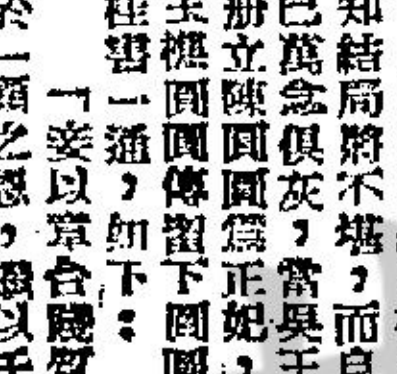 知結局將不堪，而自
已萬念俱灰，當吳王
册立陳圓圓爲正妃，
樵圓圓傳留下圓圓
書一通，如下：
「妾以章台賤質
一顧之恩，以